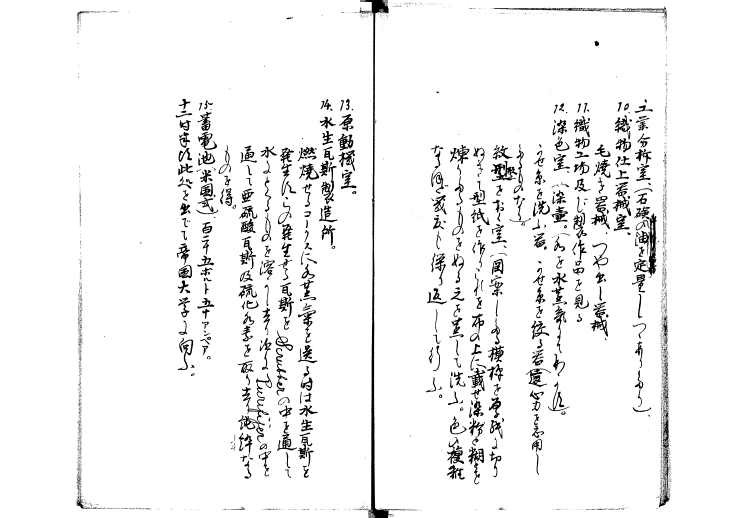 工業分析室、(石礆の油を定量しつゝありたり)
10. 織物仕上器械室、
毛焼キ器械、つや出し器械、
11. 織物工場及ビ製作品を見る
12. 染色室、(染壷。(水を水蒸気にてわかす)。
かせ糸を洗ふ器、かせ糸を絞る器(遠心力を応用し
たるものなり。
紋型をおく室、(図案したる模様を厚紙に切り
ぬきて型紙を作りこれを布の上に載せ染粉と糊とを
煉りたるものをぬる之を蒸して洗ふ。色の複雑
なるほど数度し繰り返して行ふ。
13. 原動機室。
14. 水生瓦斯製造所。
燃焼せるコークスに水蒸気を送る時は水生瓦斯を
発生す之の発生せる瓦斯を Scrubber の中を通して
水にとけるものを溶かし去り次に Purifier の中を
通して亜硫酸瓦斯及硫化水素を取り去り純粋なる
ものを得。
15. 蓄電池(米国式)百二十五ボルト五十アンペア。
十二時半頃此処を出でて帝国大学に向ふ。